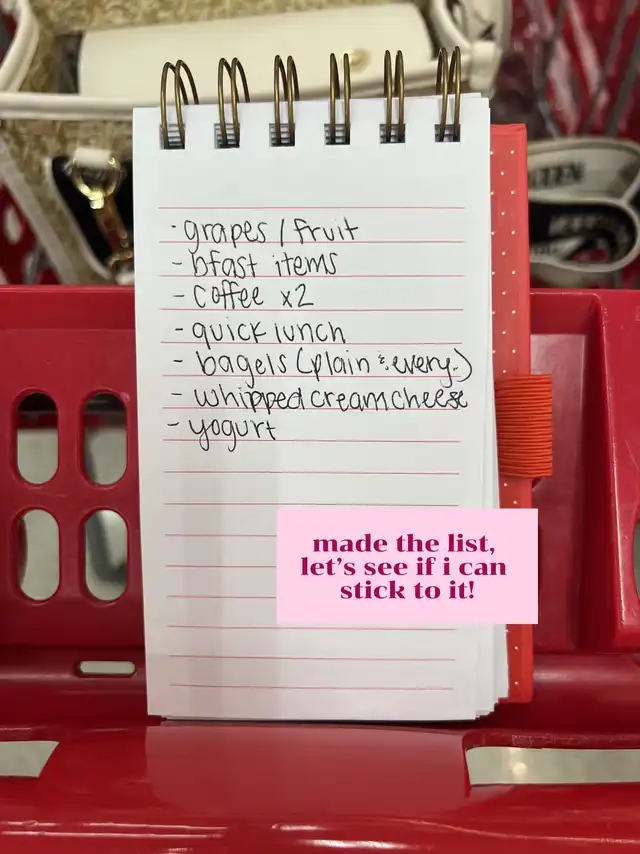 - grapes / fruit
- bfast items
- coffee x2
- quick lunch
- bagels (plain & every.)
- whipped cream cheese
- yogurt
made the list,
let's see if i can
stick to it!